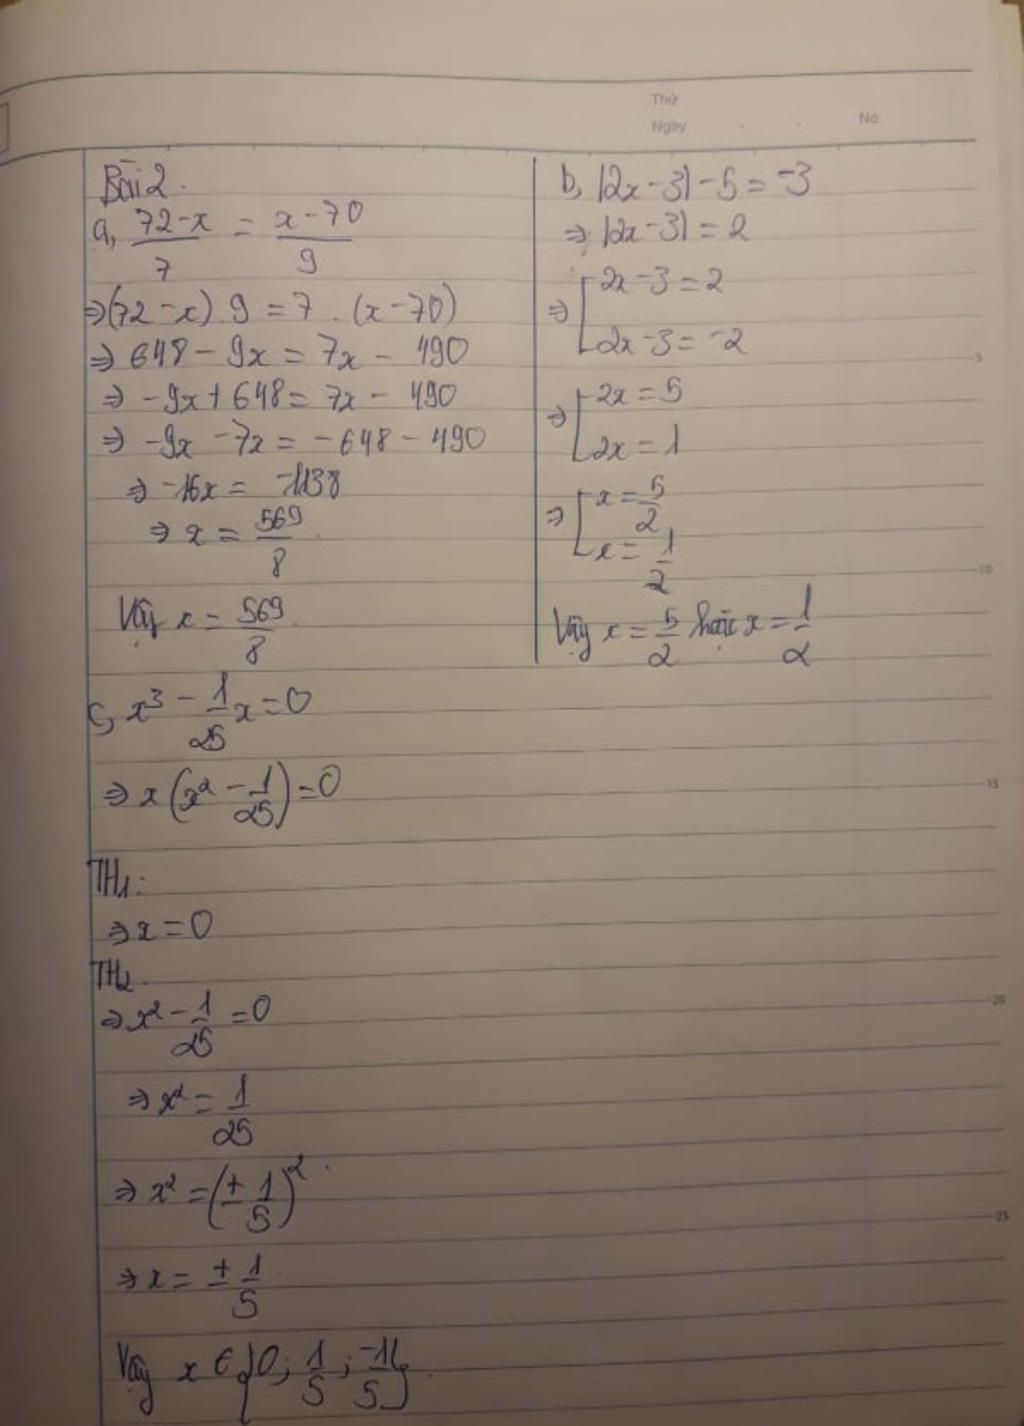 Thứ
Ngày . . No
Bài 2.
a, (72-x)/7 = (x-70)/9
⇒ (72-x).9 = 7.(x-70)
⇒ 648 - 9x = 7x - 490
⇒ -9x + 648 = 7x - 490
⇒ -9x - 7x = -648 - 490
⇒ -16x = -1138
⇒ x = 569/8
Vậy x = 569/8
b, |2x-3| - 5 = -3
⇒ |2x-3| = 2
⇒ [ 2x-3 = 2
2x-3 = -2
⇒ [ 2x = 5
2x = 1
⇒ [ x = 5/2
x = 1/2
Vậy x = 5/2 hoặc x = 1/2
c, x³ - 1/25 x = 0
⇒ x(x² - 1/25) = 0
TH1:
⇒ x = 0
TH2.
⇒ x² - 1/25 = 0
⇒ x² = 1/25
⇒ x² = (± 1/5)²
⇒ x = ± 1/5
Vậy x ∈ {0; 1/5; -1/5}
5
10
15
20
25